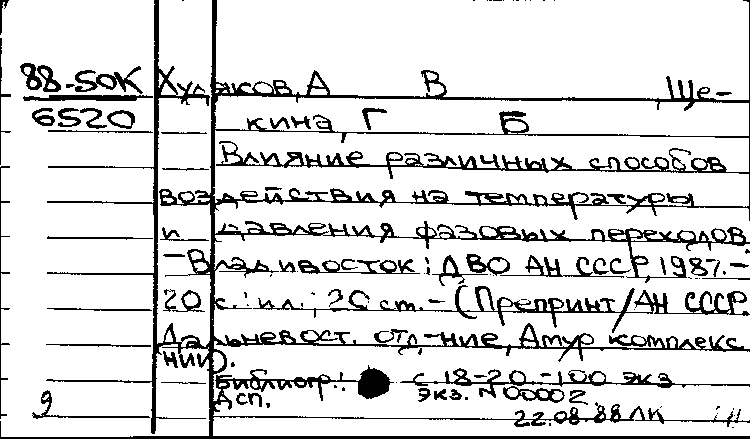 88-50К Худяков, А В , Ще-
6520 кина, Г Б
Влияние различных способов
воздействия на температуры
и давления фазовых переходов.
-Владивосток: ДВО АН СССР, 1987.-
20 с.: ил.; 20 см.-(Препринт/АН СССР.
Дальневост. отд-ние, Амур. комплекс.
НИИ).
Библиогр.: с.18-20.-100 экз.
Дсп. экз. N00002.
9 22.08.88 ЛК